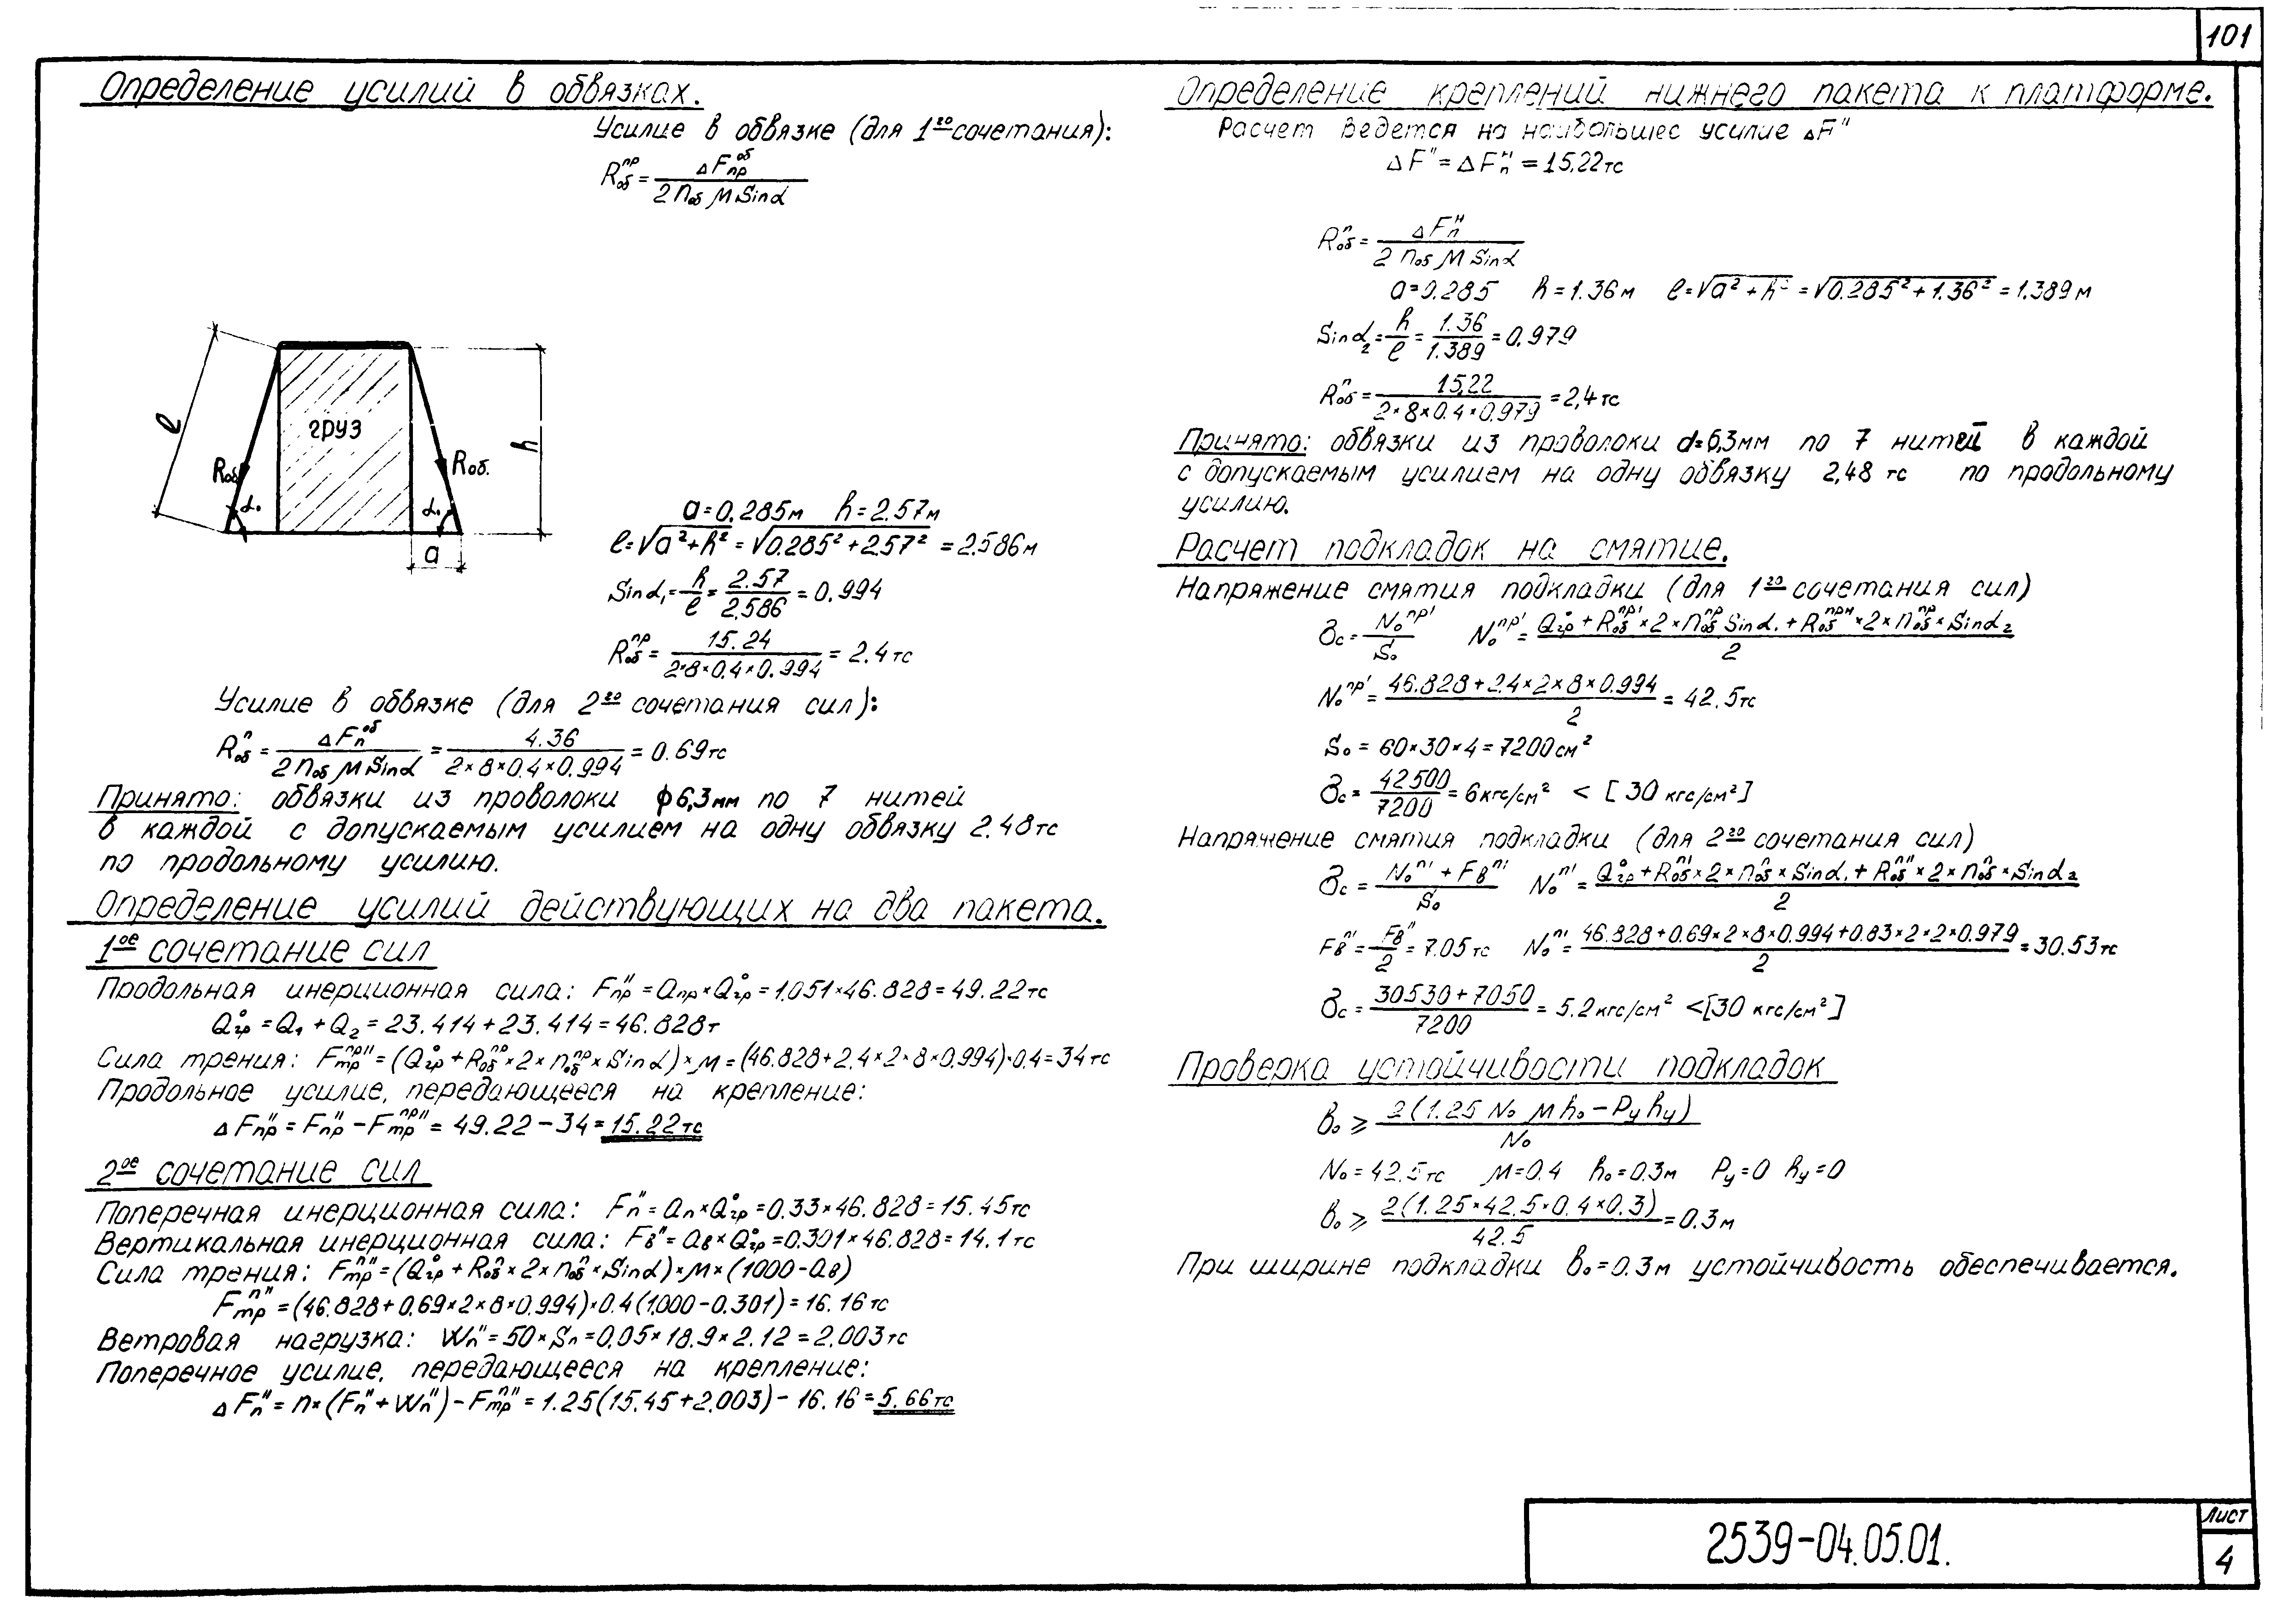 101
Определение усилий в обвязках.
Усилие в обвязке (для 1го сочетания):
Rоб^пр = ΔFпр^об / (2 nоб μ Sinα)
груз
ℓ
h
Rоб.
Rоб.
α₁
α₁
a
a = 0.285м h = 2.57м
ℓ = √(a²+h²) = √(0.285²+2.57²) = 2.586м
Sinα₁ = h/ℓ = 2.57/2.586 = 0.994
Rоб^пр = 15.24 / (2×8×0.4×0.994) = 2.4тс
Усилие в обвязке (для 2го сочетания сил):
Rоб^п = ΔFп^об / (2 nоб μ Sinα) = 4.36 / (2×8×0.4×0.994) = 0.69тс
Принято: обвязки из проволоки ф6,3мм по 7 нитей
в каждой с допускаемым усилием на одну обвязку 2.48тс
по продольному усилию.
Определение усилий действующих на два пакета.
1ое сочетание сил
Продольная инерционная сила: Fпр" = aпр×Q°гр = 1.051×46.828 = 49.22тс
Q°гр = Q₁ + Q₂ = 23.414 + 23.414 = 46.828т
Сила трения: Fтр^пр" = (Q°гр + Rоб^пр×2×nоб^пр×Sinα)×μ = (46.828+2.4×2×8×0.994)×0.4 = 34тс
Продольное усилие, передающееся на крепление:
ΔFпр" = Fпр" − Fтр^пр" = 49.22 − 34 = 15.22тс
2ое сочетание сил
Поперечная инерционная сила: Fп" = aп×Q°гр = 0.33×46.828 = 15.45тс
Вертикальная инерционная сила: Fв" = aв×Q°гр = 0.301×46.828 = 14.1тс
Сила трения: Fтр^п" = (Q°гр + Rоб^п×2×nоб^п×Sinα)×μ×(1000−aв)
Fтр^п" = (46.828+0.69×2×8×0.994)×0.4(1.000−0.301) = 16.16тс
Ветровая нагрузка: Wп" = 50×Sп = 0.05×18.9×2.12 = 2.003тс
Поперечное усилие, передающееся на крепление:
ΔFп" = n×(Fп"+Wп") − Fтр^п" = 1.25(15.45+2.003) − 16.16 = 5.66тс
Определение креплений нижнего пакета к платформе.
Расчет ведется на наибольшее усилие ΔF"
ΔF" = ΔFп^н = 15.22тс
Rоб^п = ΔFп^н / (2 nоб μ Sinα)
a = 0.285 h = 1.36м ℓ = √(a²+h²) = √(0.285²+1.36²) = 1.389м
Sinα₂ = h/ℓ = 1.36/1.389 = 0.979
Rоб^п = 15,22 / (2×8×0.4×0.979) = 2,4тс
Принято: обвязки из проволоки d=6,3мм по 7 нитей в каждой
с допускаемым усилием на одну обвязку 2,48тс по продольному
усилию.
Расчет подкладок на смятие.
Напряжение смятия подкладки (для 1го сочетания сил)
σс = N₀^пр' / S₀ N₀^пр' = (Q°гр + Rоб^пр'×2×nоб^пр Sinα₁ + Rоб^прн×2×nоб^пр×Sinα₂) / 2
N₀^пр' = (46.828+2.4×2×8×0.994) / 2 = 42.5тс
S₀ = 60×30×4 = 7200см²
σс = 42500/7200 = 6кгс/см² < [30 кгс/см²]
Напряжение смятия подкладки (для 2го сочетания сил)
σс = (N₀^п' + Fв^п') / S₀ N₀^п' = (Q°гр + Rоб^п'×2×nоб^п×Sinα₁ + Rоб^п"×2×nоб^п×Sinα₂) / 2
Fв^п' = Fв"/2 = 7.05тс N₀^п' = (46.828+0.69×2×8×0.994+0.83×2×2×0.979) / 2 = 30.53тс
σс = (30530+7050) / 7200 = 5.2кгс/см² < [30 кгс/см²]
Проверка устойчивости подкладок
b₀ ⩾ 2(1.25 N₀ μ h₀ − Pу hу) / N₀
N₀ = 42.5тс μ = 0.4 h₀ = 0.3м Pу = 0 hу = 0
b₀ ⩾ 2(1.25×42.5×0.4×0.3) / 42.5 = 0.3м
При ширине подкладки b₀ = 0.3м устойчивость обеспечивается.
2539-04.05.01.
Лист
4